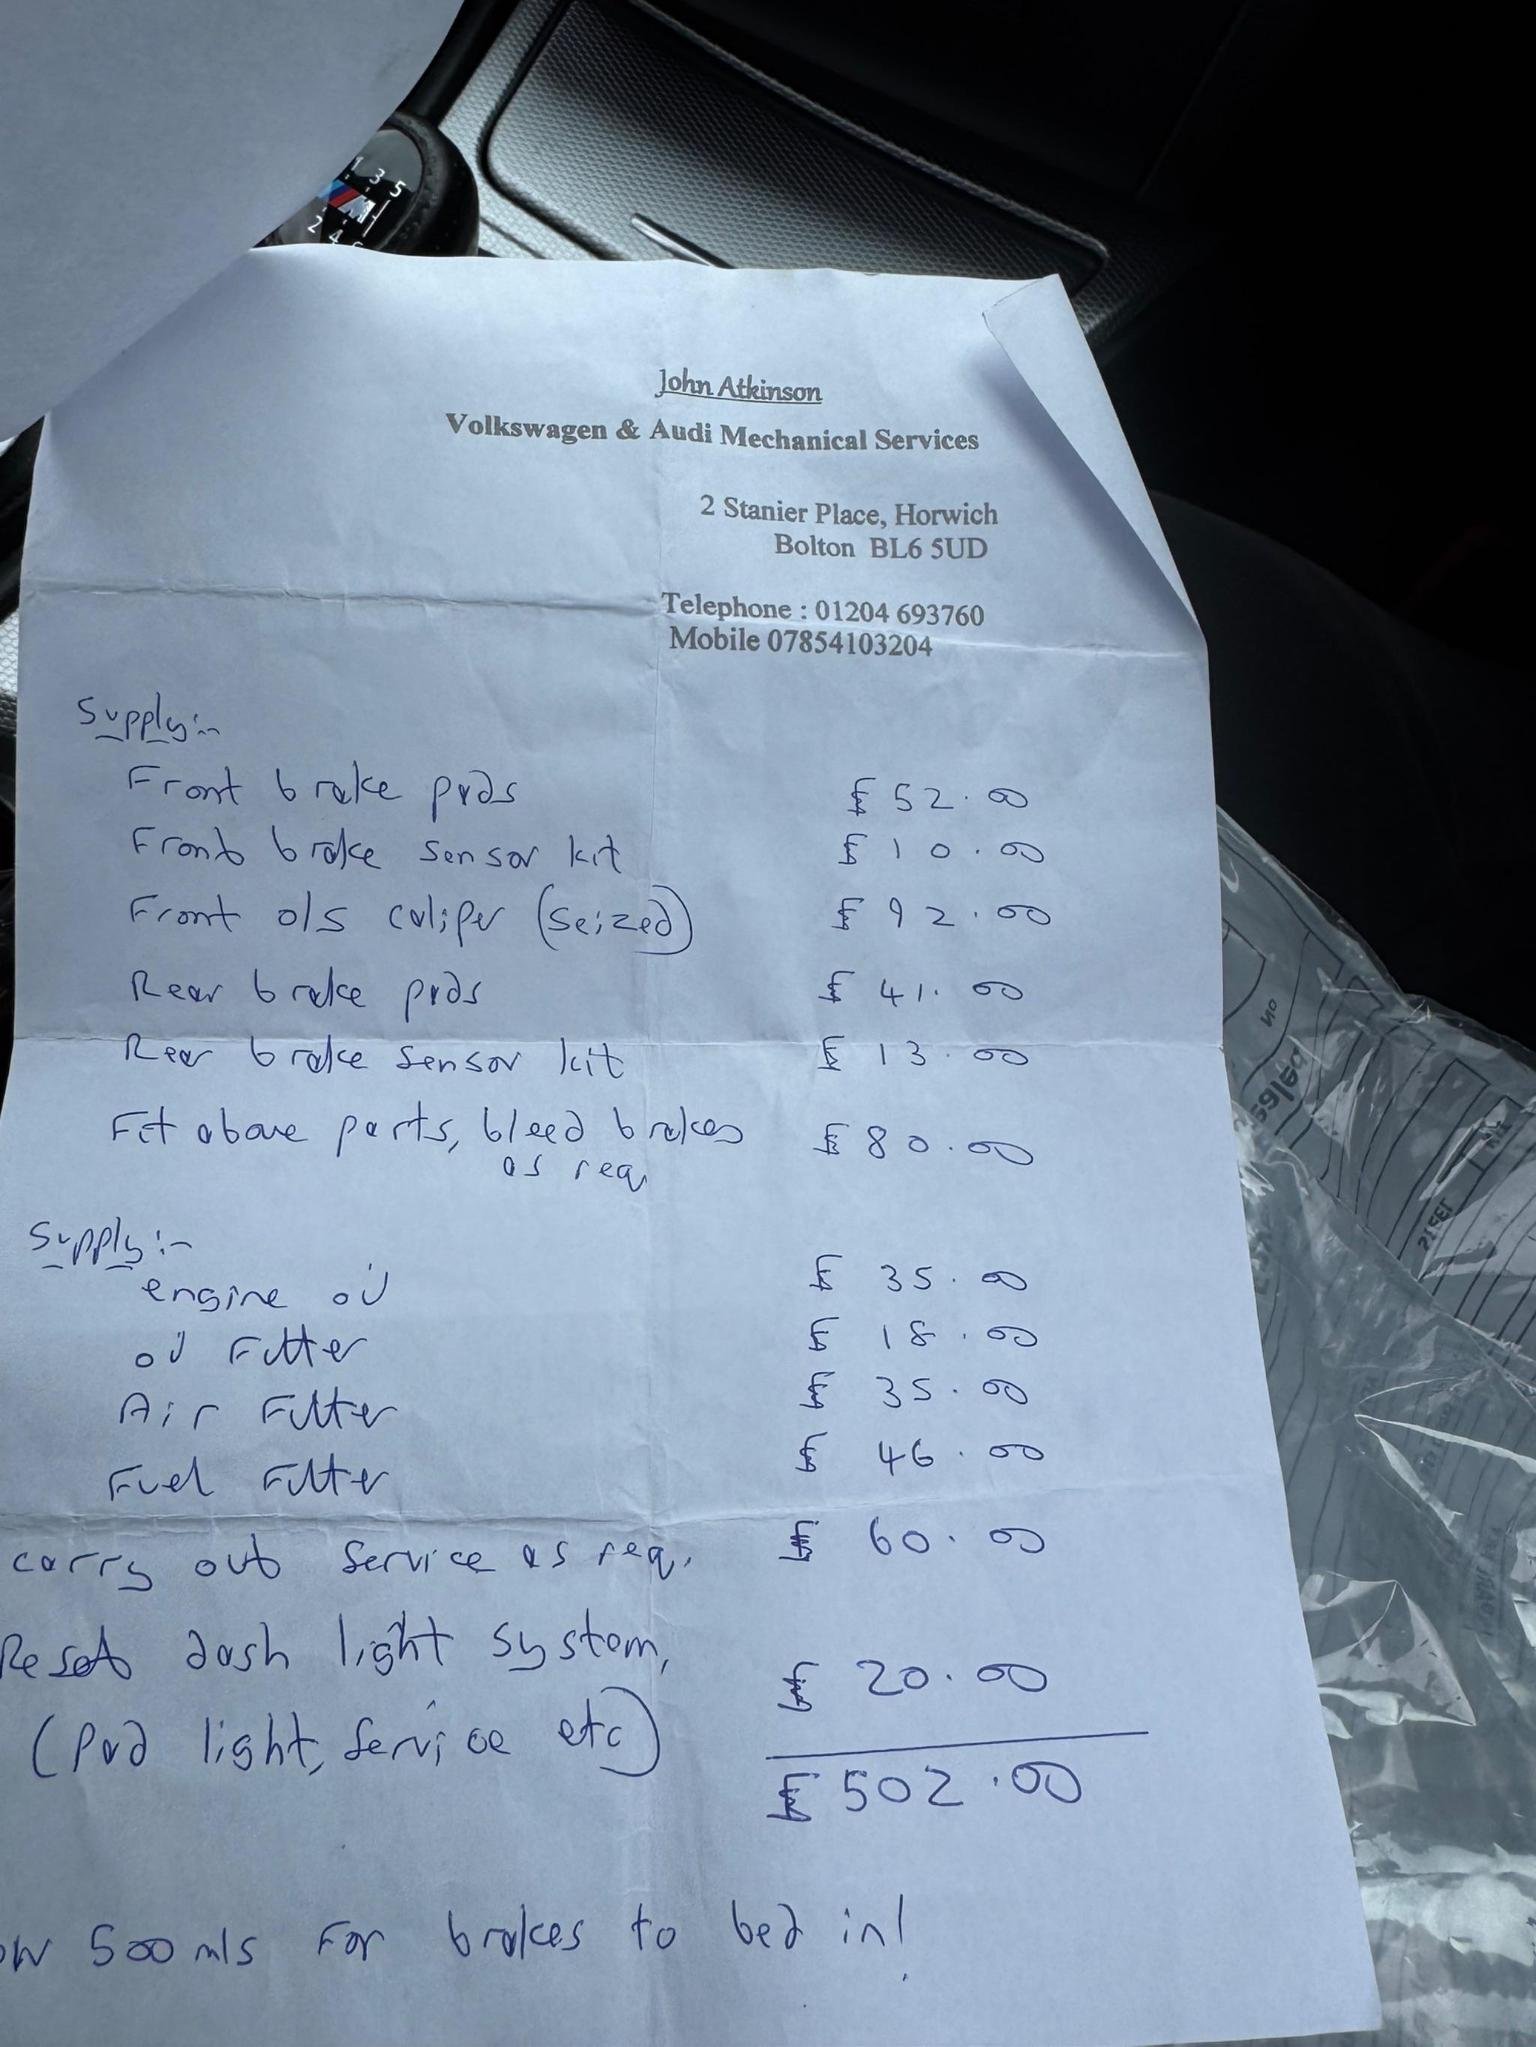 1 3 5
M
2 4
John Atkinson
Volkswagen & Audi Mechanical Services
2 Stanier Place, Horwich
Bolton BL6 5UD
Telephone : 01204 693760
Mobile 07854103204
Supply:-
Front brake pads £52.00
Front brake sensor kit £10.00
Front o/s caliper (seized) £92.00
Rear brake pads £41.00
Rear brake sensor kit £13.00
Fit above parts, bleed brakes £80.00
as req
Supply:-
engine oil £35.00
oil Filter £18.00
Air Filter £35.00
Fuel Filter £46.00
carry out service as req. £60.00
Reset dash light system, £20.00
(Pad light, Service etc)
£502.00
ow 500 mls For brakes to bed in!
No
Sealed